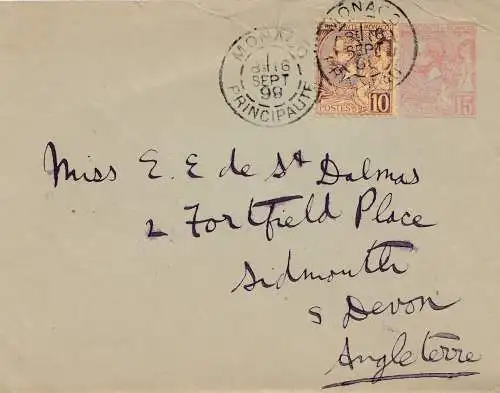 MONACO
8E 16
SEPT
99
PRINCIPAUTÉ
MONACO
SEPT
POSTES 10
15
Miss E. E de St Dalmas
2 Fortfield Place
Sidmouth
S Devon
Angleterre